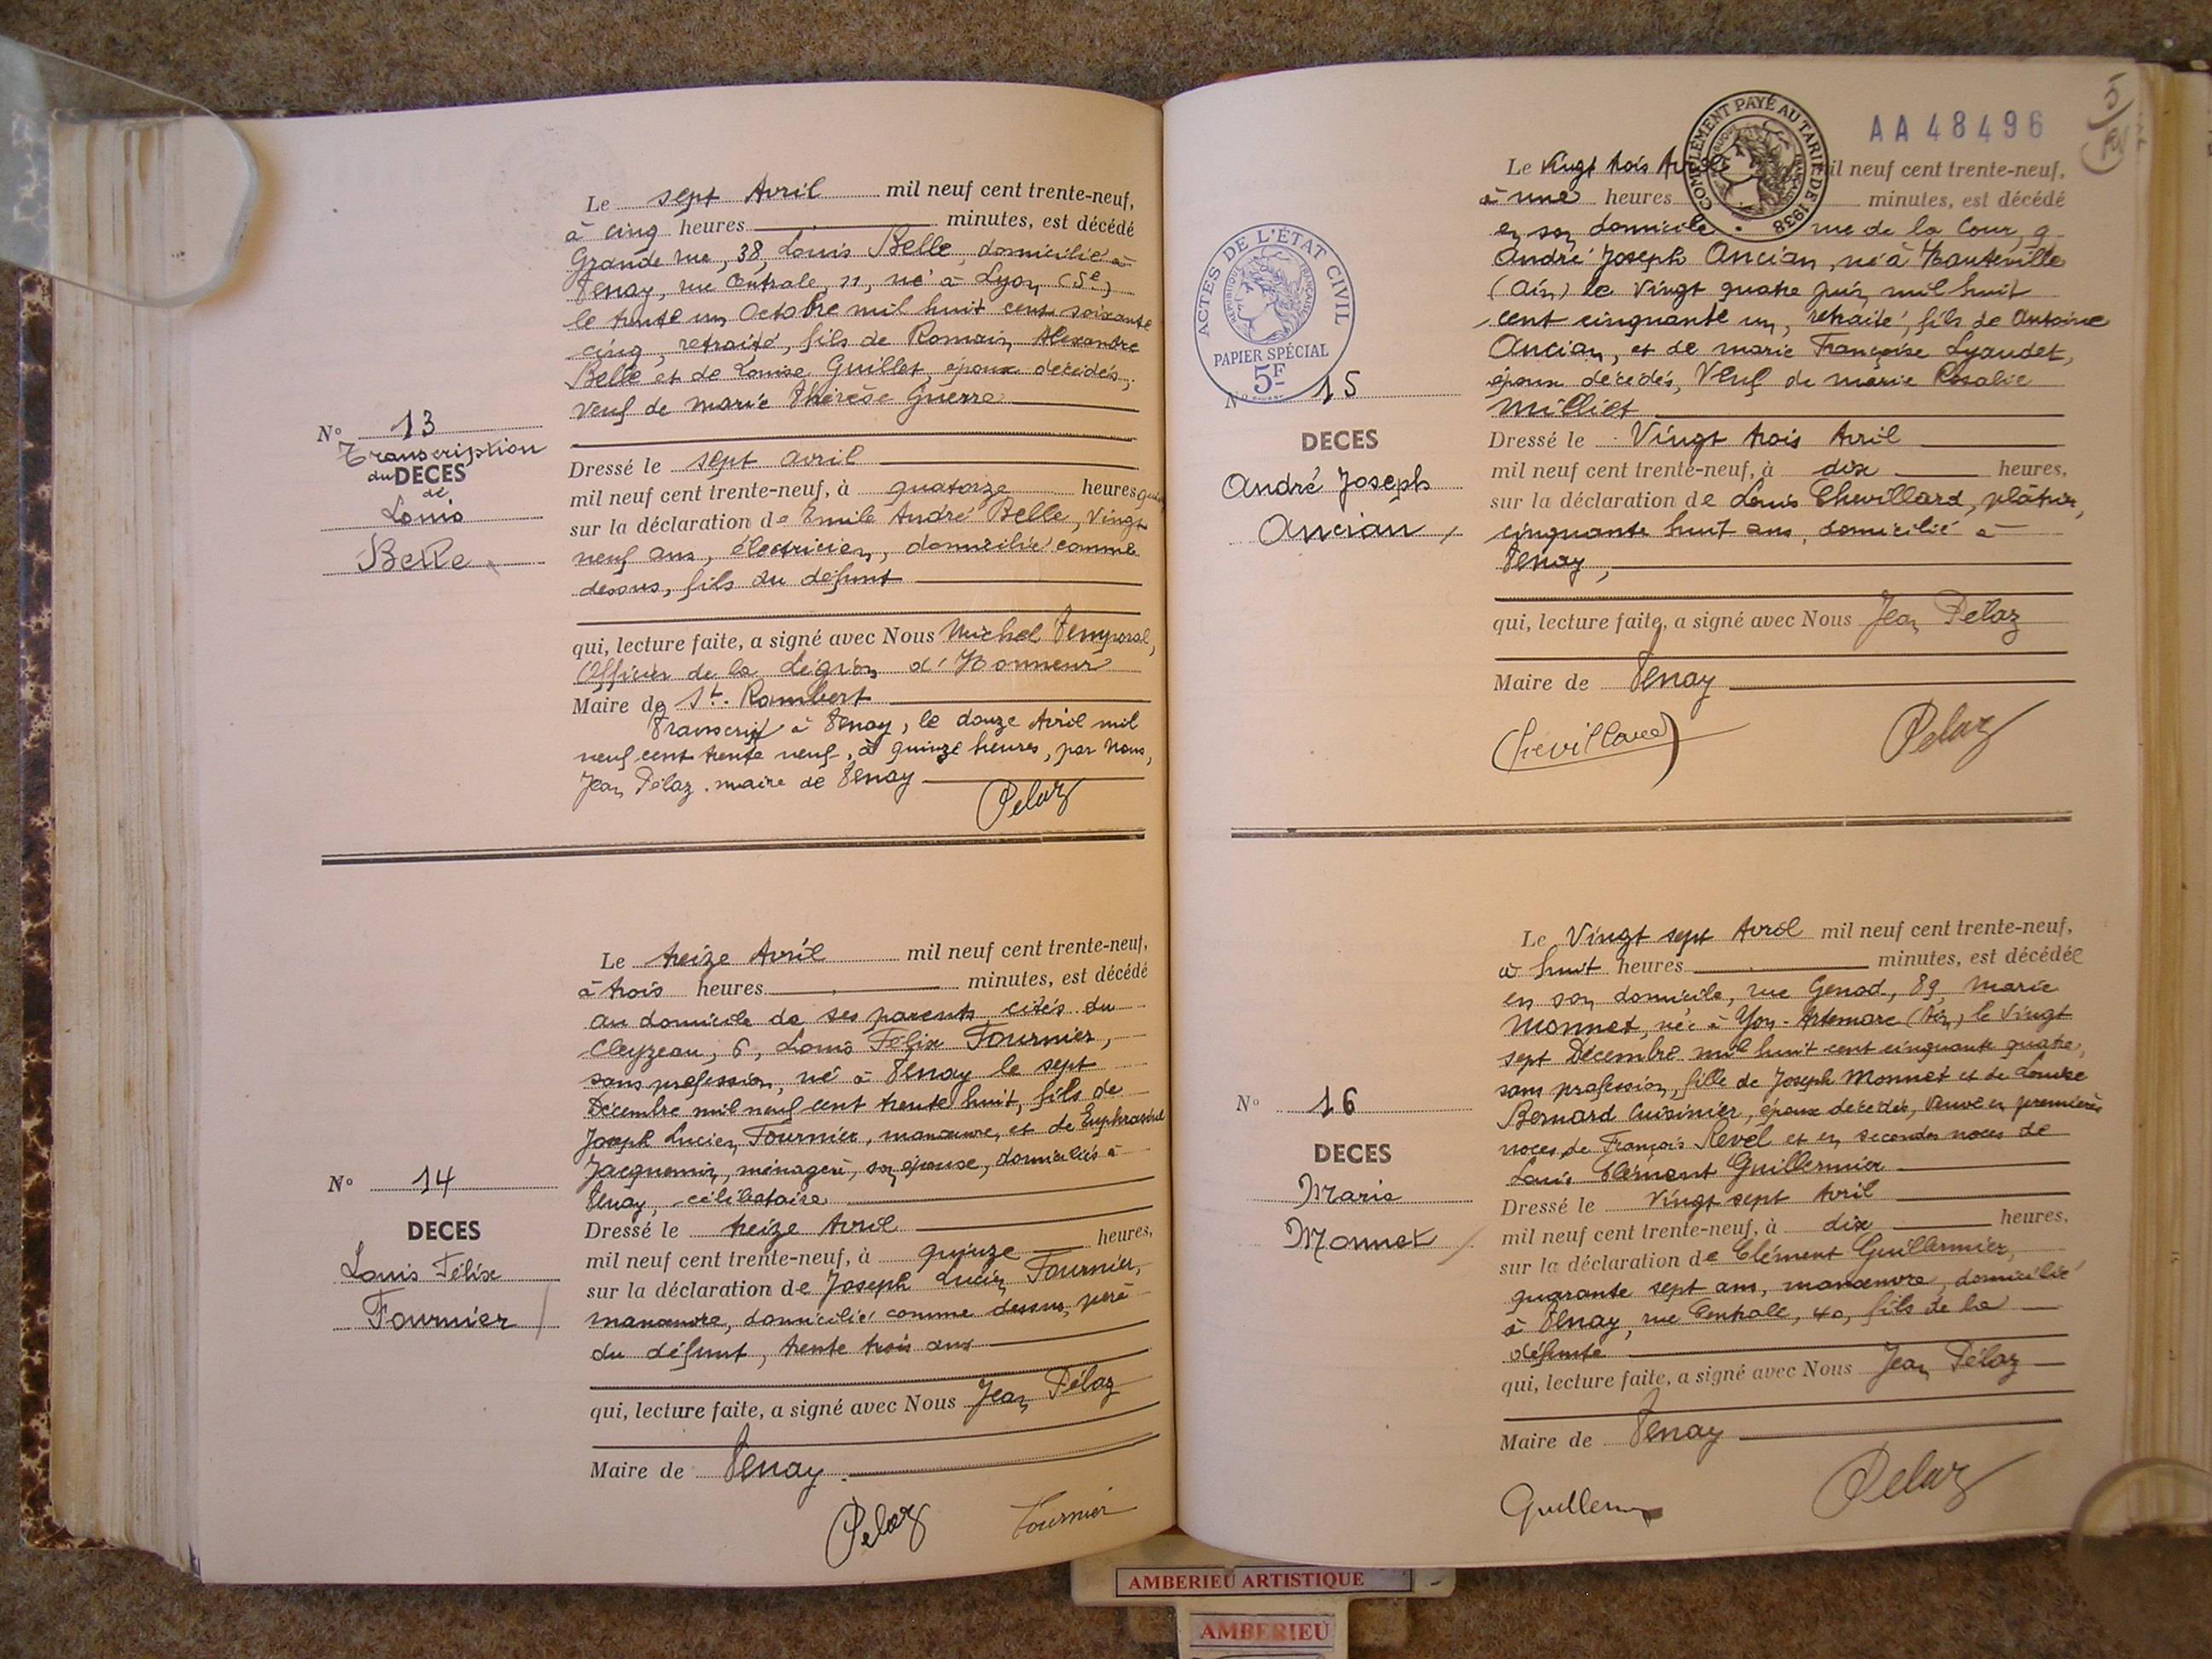 Le sept Avril mil neuf cent trente-neuf,
à cinq heures minutes, est décédé
Grande rue, 38, Louis Belle, domicilié à
Tenay, rue Centrale, 11, né à Lyon (5e)
le trente un Octobre mil huit cent soixante
cinq, retraité, fils de Romain Alexandre
Belle et de Louise Guillet, époux décédés,
veuf de Marie Thérèse Guerre
N° 13
Transcription
du DECES
de
Louis
Belle
Dressé le sept avril
mil neuf cent trente-neuf, à quatorze heures
sur la déclaration de Emile André Belle, vingt
neuf ans, électricien, domicilié comme
dessus, fils du défunt
qui, lecture faite, a signé avec Nous Michel Temporal,
Officier de la Légion d'Honneur
Maire de St. Rambert
Transcrit à Tenay, le douze Avril mil
neuf cent trente neuf, à quinze heures, par Nous,
Jean Pélaz, maire de Tenay
Pelaz
Le treize Avril mil neuf cent trente-neuf,
à trois heures minutes, est décédé
au domicile de ses parents cités du
Cleyzeau, 6, Louis Félix Fournier,
sans profession, né à Tenay le sept
Décembre mil neuf cent trente huit, fils de
Joseph Lucien Fournier, manœuvre, et de Euphrasine
Jacquemin, ménagère, son épouse, domiciliés à
Tenay, célibataire
N° 14
DECES
Louis Félix
Fournier
Dressé le treize Avril
mil neuf cent trente-neuf, à quinze heures,
sur la déclaration de Joseph Lucien Fournier,
manœuvre, domicilié comme dessus, père
du défunt, trente trois ans
qui, lecture faite, a signé avec Nous Jean Pélaz
Maire de Tenay
Pelaz Fournier
COMPLÉMENT PAYÉ AU TARIF DE 1938
AA 48496
5
Le vingt trois Avril mil neuf cent trente-neuf,
à une heures minutes, est décédé
en son domicile rue de la Cour, 9
André Joseph Ancian, né à Hauteville
(Ain) le vingt quatre juin mil huit
cent cinquante un, retraité, fils de Antoine
Ancian, et de Marie Françoise Lyaudet,
époux décédés, Veuf de Marie Rosalie
Milliet
ACTES DE L'ÉTAT CIVIL
RÉPUBLIQUE FRANÇAISE
PAPIER SPÉCIAL
5F
N° 15
DECES
André Joseph
Ancian
Dressé le Vingt trois Avril
mil neuf cent trente-neuf, à dix heures,
sur la déclaration de Louis Chevillard, plâtrier,
cinquante huit ans, domicilié à
Tenay,
qui, lecture faite, a signé avec Nous Jean Pélaz
Maire de Tenay
Chevillard Pelaz
Le Vingt sept Avril mil neuf cent trente-neuf,
à huit heures minutes, est décédée
en son domicile, rue Genod, 89, Marie
Monnet, née à Yon-Artemare (Ain) le vingt
sept Décembre mil huit cent cinquante quatre,
sans profession, fille de Joseph Monnet et de Louise
Bernard Cuisinier, époux décédés, veuve en premières
noces, de François Revel et en secondes noces de
Louis Clément Guillermier
N° 16
DECES
Marie
Monnet
Dressé le Vingt sept Avril
mil neuf cent trente-neuf, à dix heures,
sur la déclaration de Clément Guillermier,
quarante sept ans, manœuvre, domicilié
à Tenay, rue Centrale, 40, fils de la
défunte
qui, lecture faite, a signé avec Nous Jean Pélaz
Maire de Tenay
Pelaz
AMBERIEU ARTISTIQUE
AMBERIEU